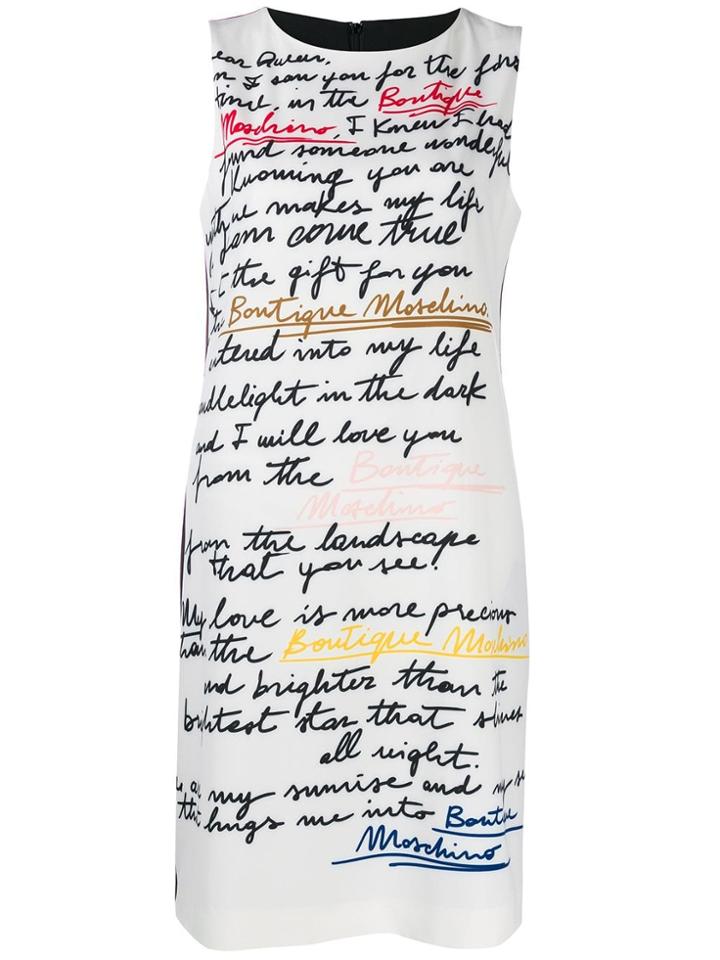 ear Queen,
n I saw you for the firs
time, in the Boutique
Moschino, I knew I had
found someone wonderful
Knowing you are
me makes my life
eam come true
t the gift for you
Boutique Moschino.
ntered into my life
ndlelight in the dark
and I will love you
from the Boutique
Moschino
from the landscape
that you see!
My love is more precious
than the Boutique Moschino
and brighter than the
brightest star that shines
all night.
my sunrise and my
brings me into Boutique
Moschino